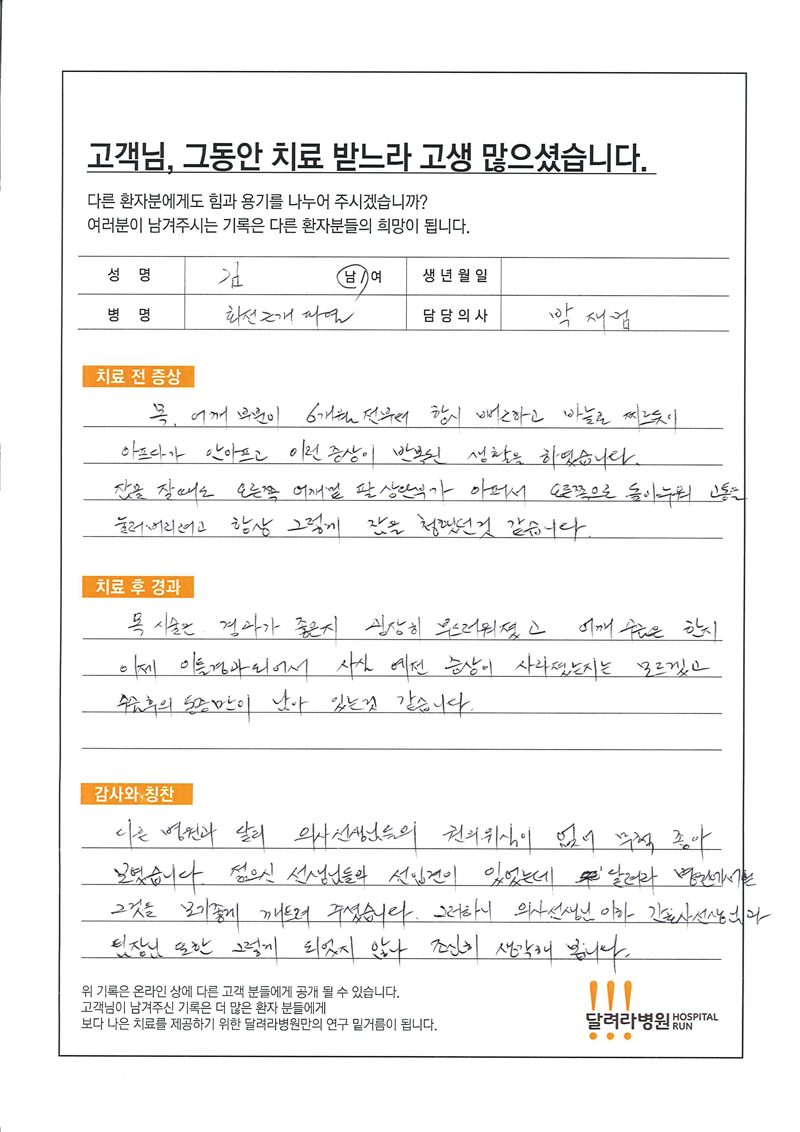 고객님, 그동안 치료 받느라 고생 많으셨습니다.
다른 환자분에게도 힘과 용기를 나누어 주시겠습니까?
여러분이 남겨주시는 기록은 다른 환자분들의 희망이 됩니다.
성 명 김 남/여 생년월일
병 명 회전근개 파열 담당의사 박재검
치료 전 증상
목, 어깨 부분이 6개월 전부터 항시 뻐근하고 바늘로 찌르듯이
아프다가 안아프고 이런 증상이 반복된 생활을 하였습니다.
잠을 잘때도 오른쪽 어깨겉 팔 상단부가 아퍼서 오른쪽으로 돌아누워 고통을
눌러버리려고 항상 그렇게 잠을 청했던것 같습니다.
치료 후 경과
목 시술은 경과가 좋은지 굉장히 부드러워졌고 어깨 수술은 한지
이제 이틀경과되어서 사실 예전 증상이 사라졌는지는 모르겠고
수술후의 통증만이 남아 있는것 같습니다.
감사와 칭찬
다른 병원과 달리 의사선생님들의 권위의식이 없어 무척 좋아
보였습니다. 젊으신 선생님들의 선입견이 있었는데 달려라 병원에서는
그것을 보기좋게 깨트려 주셨습니다. 그러하니 의사선생님 이하 간호사선생님과
팀장님 또한 그렇게 되었지 않나 조심히 생각해 봅니다.
위 기록은 온라인 상에 다른 고객 분들에게 공개 될 수 있습니다.
고객님이 남겨주신 기록은 더 많은 환자 분들에게
보다 나은 치료를 제공하기 위한 달려라병원만의 연구 밑거름이 됩니다.
!!!
달려라병원 HOSPITAL RUN